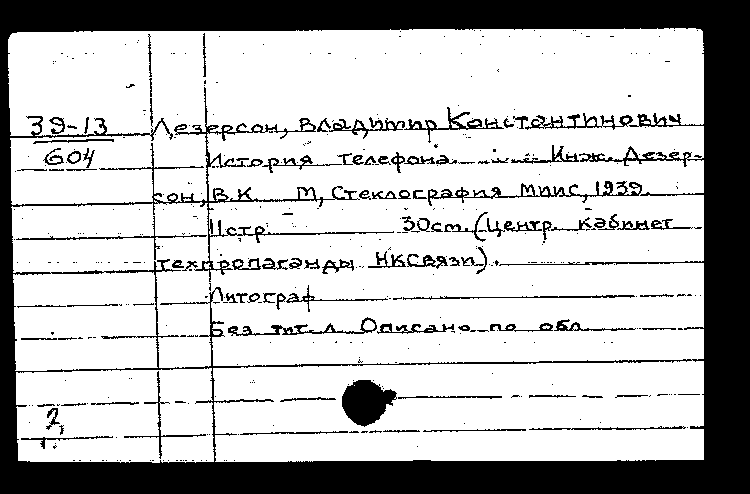 39-13
604
Лезерсон, Владимир Константинович
История телефона. Инж. Лезер-
сон, В.К. М, Стеклография МИИС, 1939.
11 стр. 30 см. (Центр. кабинет
техпропаганды НКСвязи).
Литограф
Без тит. л. Описано по обл
2,